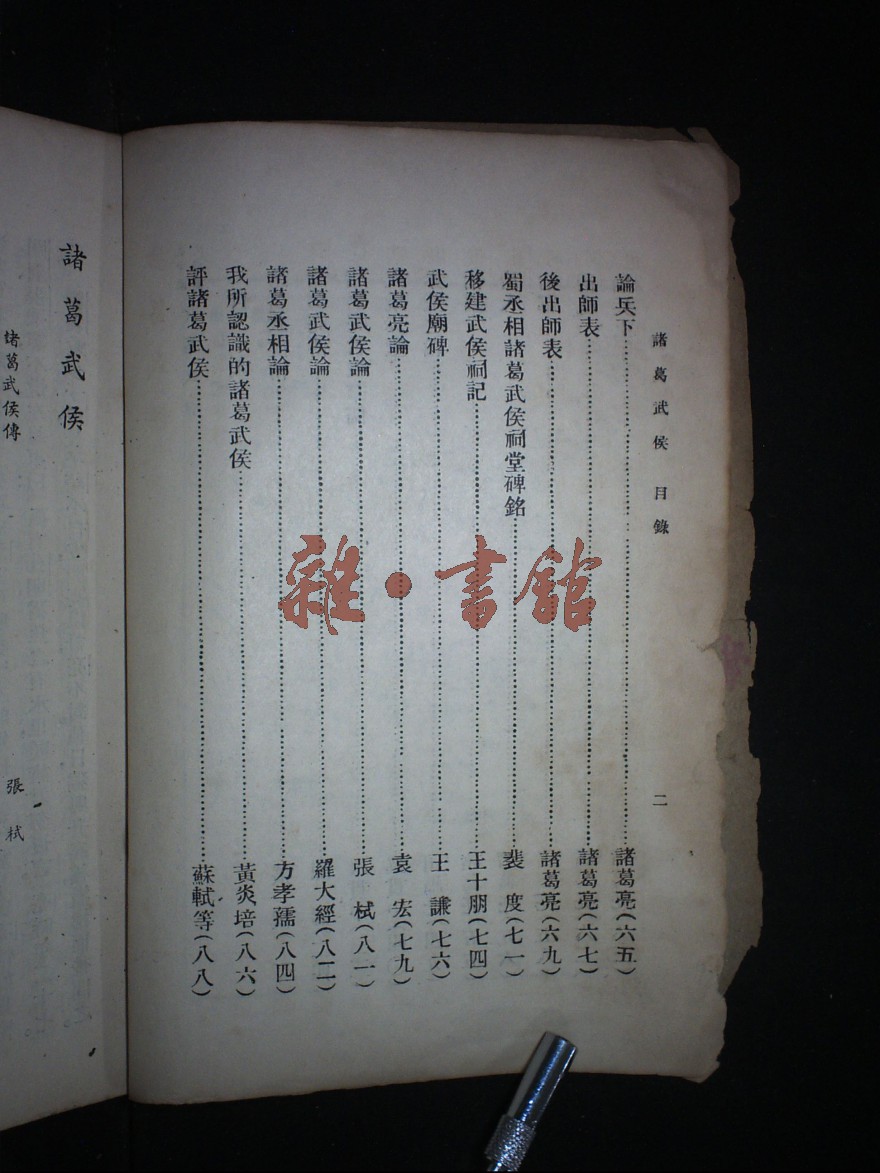 諸葛武侯 目錄
二
論兵下……諸葛亮(六五)
出師表……諸葛亮(六七)
後出師表……諸葛亮(六九)
蜀丞相諸葛武侯祠堂碑銘……裴 度(七一)
移建武侯祠記……王十朋(七四)
武侯廟碑……王 謙(七六)
諸葛亮論……袁 宏(七九)
諸葛武侯論……張 栻(八一)
諸葛武侯論……羅大經(八二)
諸葛丞相論……方孝孺(八四)
我所認識的諸葛武侯……黃炎培(八六)
評諸葛武侯……蘇軾等(八八)
諸葛武侯
諸葛武侯傳
張 栻
雜·書館